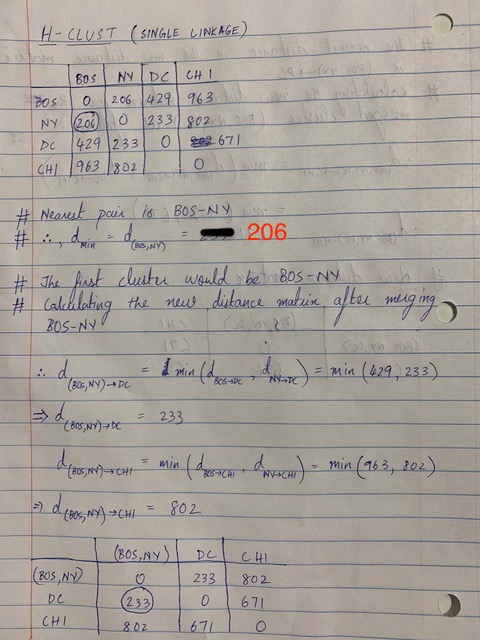 H-CLUST (SINGLE LINKAGE)
BOS NY DC CHI
BOS 0 206 429 963
NY 206 0 233 802
DC 429 233 0 802 671
CHI 963 802 0
# Nearest pair is BOS-NY
# ∴, d min = d (BOS,NY) = 206
# The first cluster would be BOS-NY
# Calculating the new distance matrix after merging
BOS-NY
∴ d (BOS,NY)→DC = min (d BOS→DC , d NY→DC) = min (429, 233)
⇒ d (BOS,NY)→DC = 233
d (BOS,NY)→CHI = min (d BOS→CHI , d NY→CHI) = min (963, 802)
⇒ d (BOS,NY)→CHI = 802
(BOS,NY) DC CHI
(BOS,NY) 0 233 802
DC 233 0 671
CHI 802 671 0